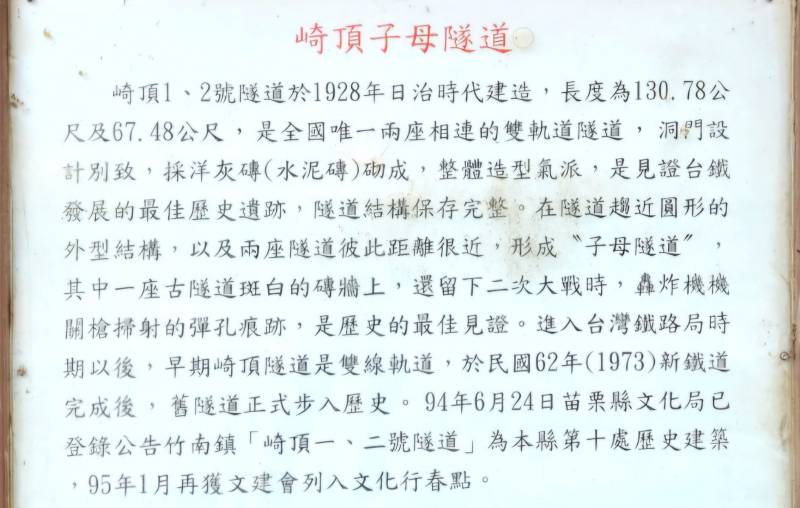 崎頂子母隧道
崎頂1、2號隧道於1928年日治時代建造，長度為130.78公
尺及67.48公尺，是全國唯一兩座相連的雙軌道隧道，洞門設
計別致，採洋灰磚(水泥磚)砌成，整體造型氣派，是見證台鐵
發展的最佳歷史遺跡，隧道結構保存完整。在隧道趨近圓形的
外型結構，以及兩座隧道彼此距離很近，形成〝子母隧道〞，
其中一座古隧道斑白的磚牆上，還留下二次大戰時，轟炸機機
關槍掃射的彈孔痕跡，是歷史的最佳見證。進入台灣鐵路局時
期以後，早期崎頂隧道是雙線軌道，於民國62年(1973)新鐵道
完成後，舊隧道正式步入歷史。94年6月24日苗栗縣文化局已
登錄公告竹南鎮「崎頂一、二號隧道」為本縣第十處歷史建築
，95年1月再獲文建會列入文化行春點。